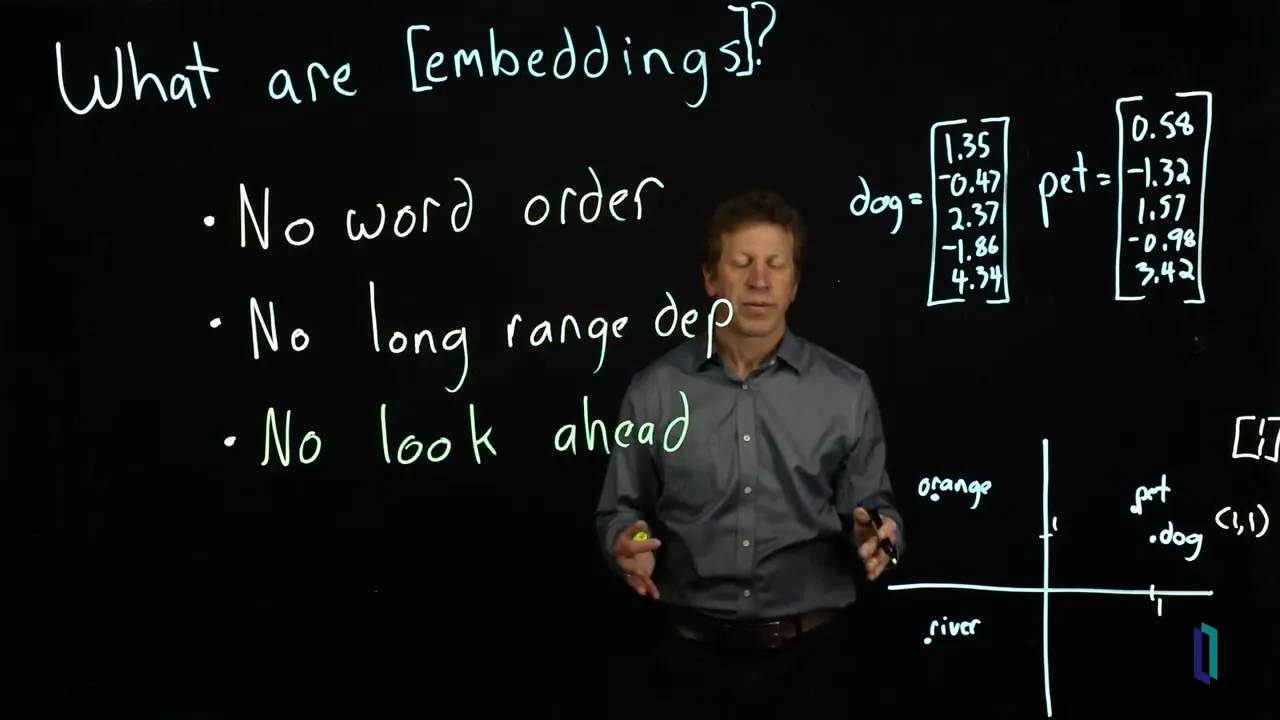 What are [embeddings]?
• No word order
• No long range dep
• No look ahead
dog = [1.35
-0.47
2.37
-1.86
4.34]
pet = [0.58
-1.32
1.57
-0.98
3.42]
[1]
orange
pet
(1,1)
dog
1
1
river